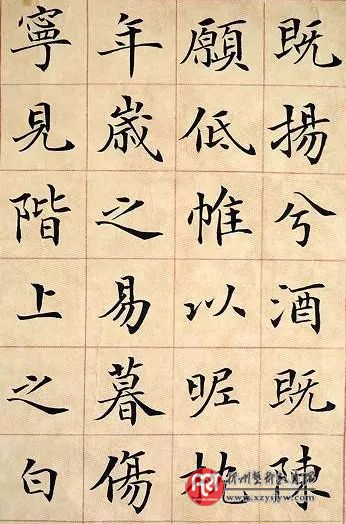 既揚兮酒既陳
願低帷以昵枕
年歲之易暮傷
寧見階上之白
忻州藝術教育网
www.xzysjyw.com